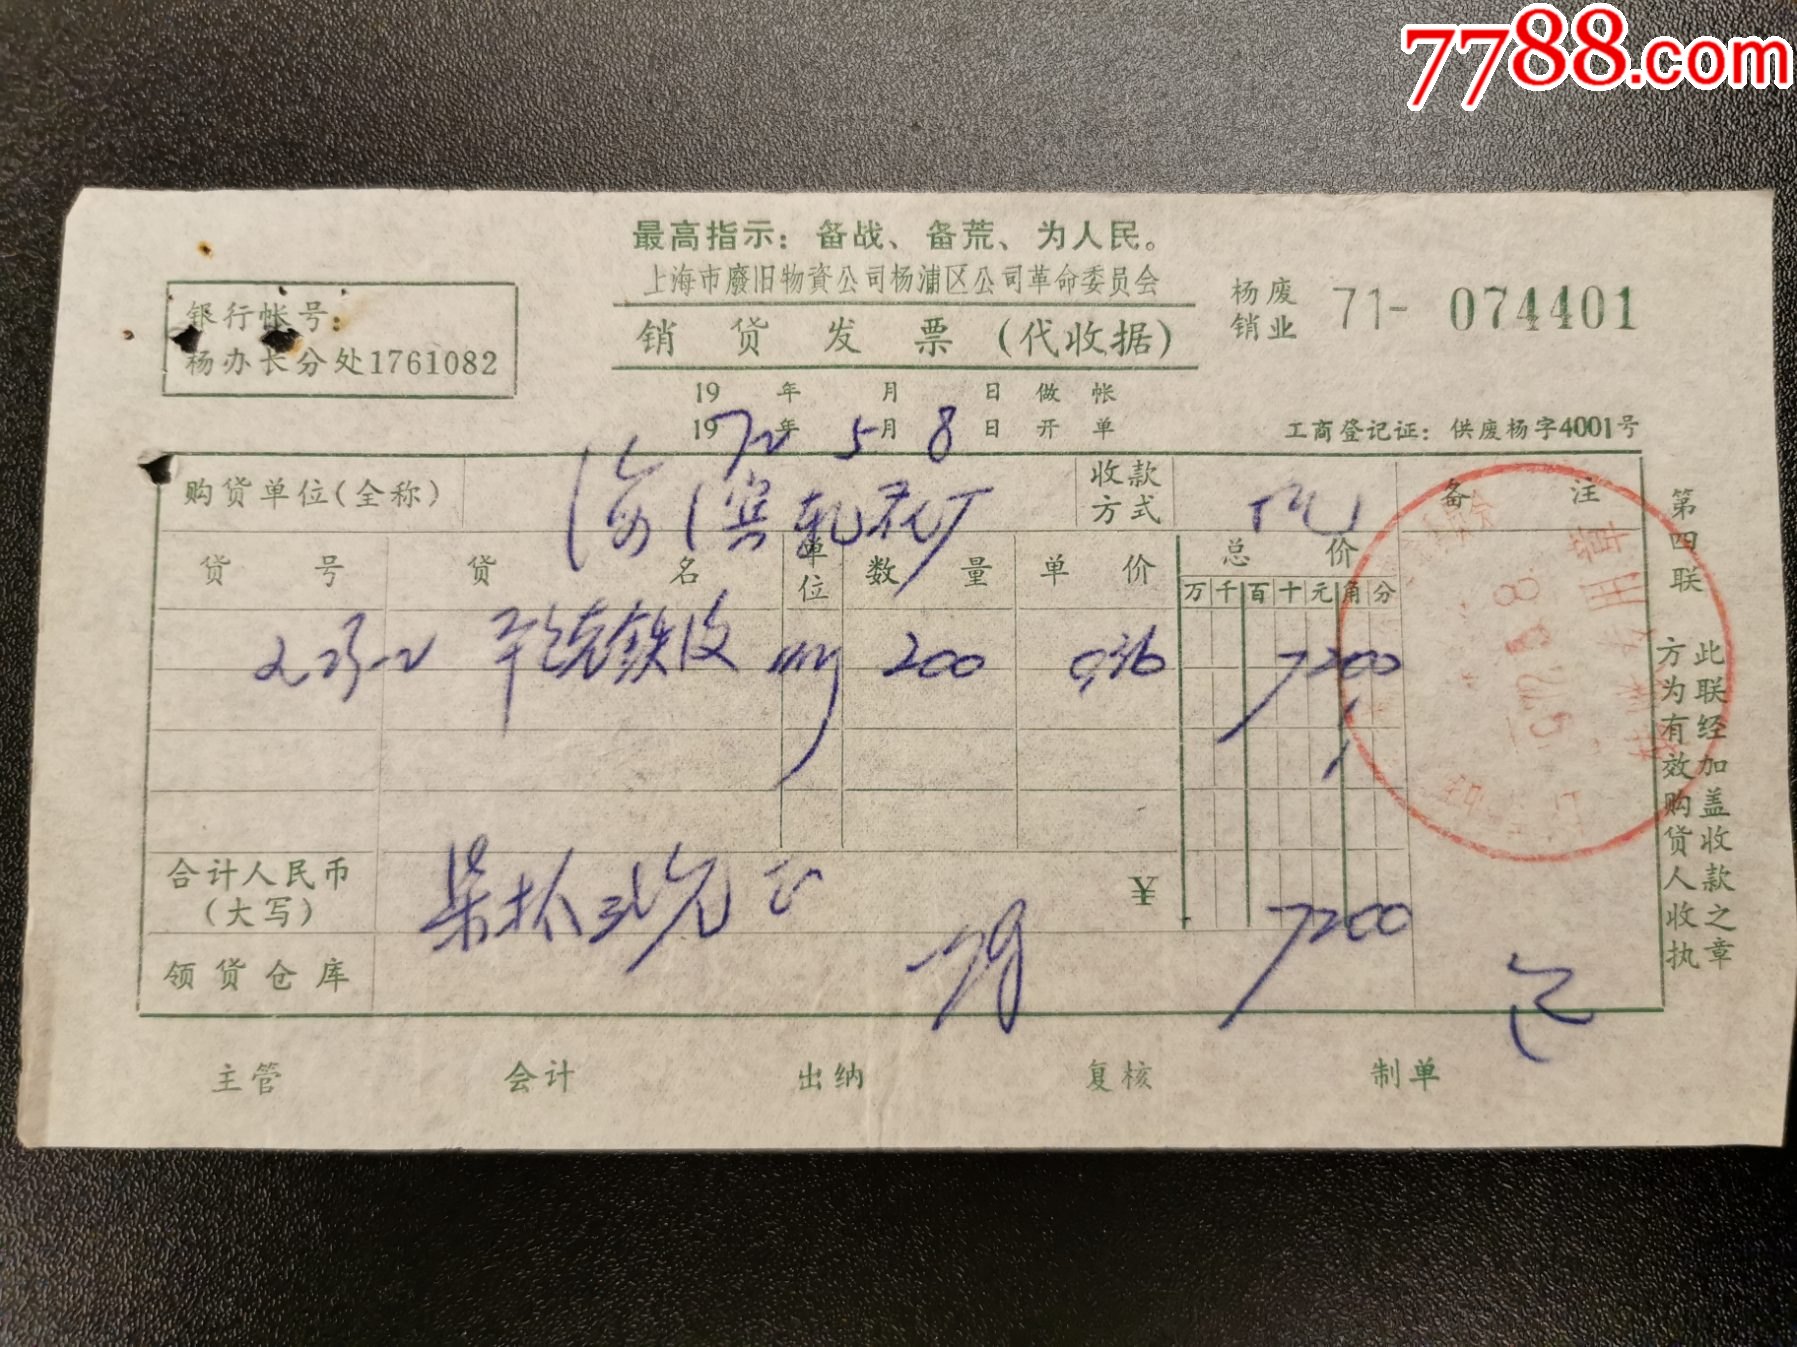 7788.com
最高指示：备战、备荒、为人民。
上海市廢旧物資公司杨浦区公司革命委员会
销货发票（代收据）
杨废
销业
71- 074401
银行帐号：
杨办长分处1761082
19 年 月 日 做 帐
1972年5月8日 开 单
工商登记证：供废杨字4001号
购货单位(全称) 海滨轧花厂
收款方式
备 注
货 号 货 名 单位 数 量 单 价 总 价
万 千 百 十 元 角 分
200 0.36 7200
合计人民币（大写） 柒拾 元正 ¥ 7200
领货仓库
主管 会计 出纳 复核 制单
第四联 此联经加盖收款之章
方为有效购货人收执